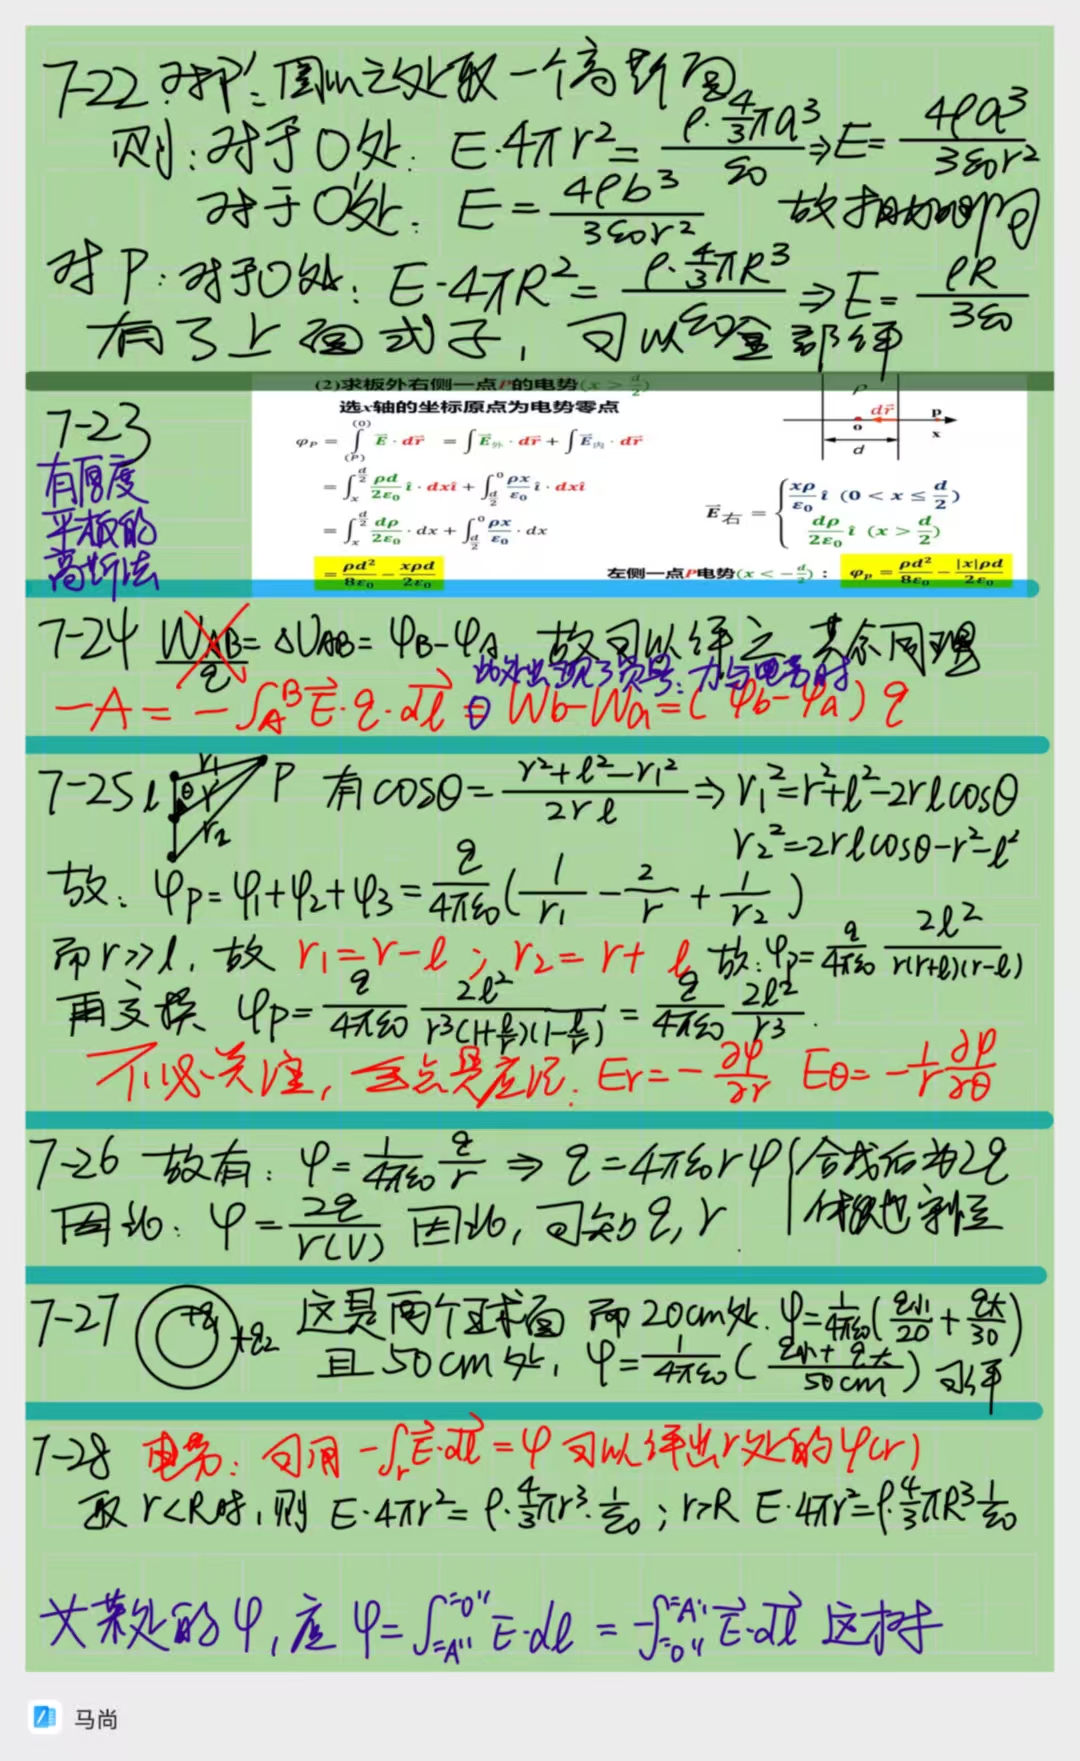 7-22 对P': 图以之处取一个高斯面
则: 对于O处: E·4πr² = ρ·4/3πa³/ε0 ⇒ E = 4ρa³/3ε0r²
对于O'处: E = 4ρb³/3ε0r² 故
对P: 对于O处: E·4πR² = ρ·4/3πR³/ε0 ⇒ E = ρR/3ε0
有了上面式子, 可以全部解
7-23
有厚度
平板的
高斯法
(2)求板外右侧一点P的电势(x > d/2)
选x轴的坐标原点为电势零点
φP = ∫(P)(0) E·dr = ∫E外·dr + ∫E内·dr
= ∫x^(d/2) ρd/2ε0 î·dxî + ∫(d/2)^0 ρx/ε0 î·dxî
= ∫x^(d/2) dρ/2ε0·dx + ∫(d/2)^0 ρx/ε0·dx
= ρd²/8ε0 − xρd/2ε0
ρ
dr
o
P
x
d
E右 = { xρ/ε0 î (0 < x ≤ d/2)
dρ/2ε0 î (x > d/2)
左侧一点P电势(x < −d/2): φp = ρd²/8ε0 − |x|ρd/2ε0
7-24 WAB/q = ΔUAB = φB−φA 故可以解之 其余同理
此处出现了负号: 力与电势时
−A = −∫A^B E·q·dl = Wb−Wa = (φb−φa)q
7-25 l r1 θ r r2 P 有cosθ = r²+l²−r1²/2rl ⇒ r1² = r²+l²−2rlcosθ
r2² = 2rlcosθ−r²−l²
故: φP = φ1+φ2+φ3 = q/4πε0 (1/r1 − 2/r + 1/r2)
而r≫l, 故 r1 = r−l; r2 = r+l 故: φP = q/4πε0 2l²/r(r+l)(r−l)
再变换 φP = q/4πε0 2l²/r³(1+l/r)(1−l/r) = q/4πε0 2l²/r³.
不必关注, 重点是应记: Er = −∂φ/∂r Eθ = −1/r ∂φ/∂θ
7-26 故有: φ = 1/4πε0 q/r ⇒ q = 4πε0rφ 合成后为2q
因此: φ = 2q/r(V) 因此, 可知q, r. 体积也守恒
7-27 +q1 +q2 这是两个球面 而20cm处. φ = 1/4πε0 (q小/20 + q大/30)
且50cm处, φ = 1/4πε0 (q小+q大/50cm) 可解
7-28 电势: 可用 −∫r E·dl = φ 可以解出r处的φ(r)
取r<R时, 则 E·4πr² = ρ·4/3πr³·1/ε0; r>R E·4πr² = ρ·4/3πR³·1/ε0
求某处的φ, 应φ = ∫"A"^"0" E·dl = −∫"0"^"A" E·dl 这样子
马尚